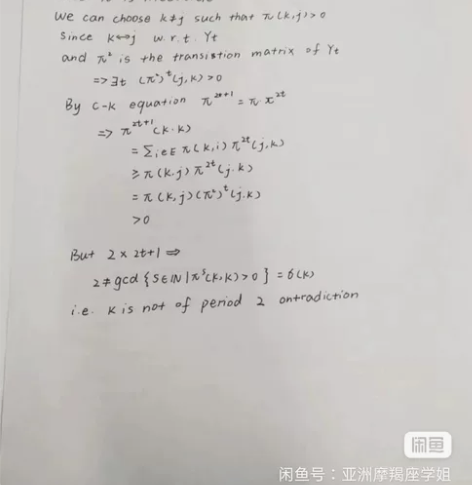 We can choose k≠j such that π(k,j)>0
Since k↔j w.r.t. Yt
and π² is the transistion matrix of Yt
=> ∃t (π²)ᵗ(j,k)>0
By C-K equation π²ᵗ⁺¹=π·π²ᵗ
=> π²ᵗ⁺¹(k.k)
= Σi∈E π(k,i) π²ᵗ(j,k)
≥ π(k.j) π²ᵗ(j.k)
= π(k,j)(π²)ᵗ(j.k)
>0
But 2 × 2t+1 =>
2≠gcd{S∈IN|πˢ(k,k)>0}=6(k)
i.e. k is not of period 2 ontradiction
闲鱼
闲鱼号：亚洲摩羯座学姐